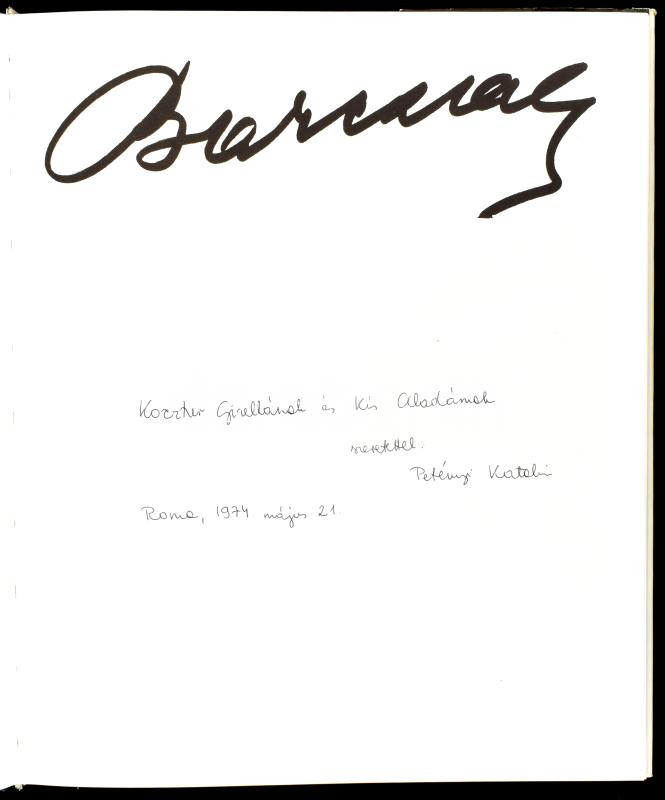 Barcsay
Koszter Gizellának és Kis Aladárnak
szeretettel.
Petényi Katalin
Roma, 1974 május 21.